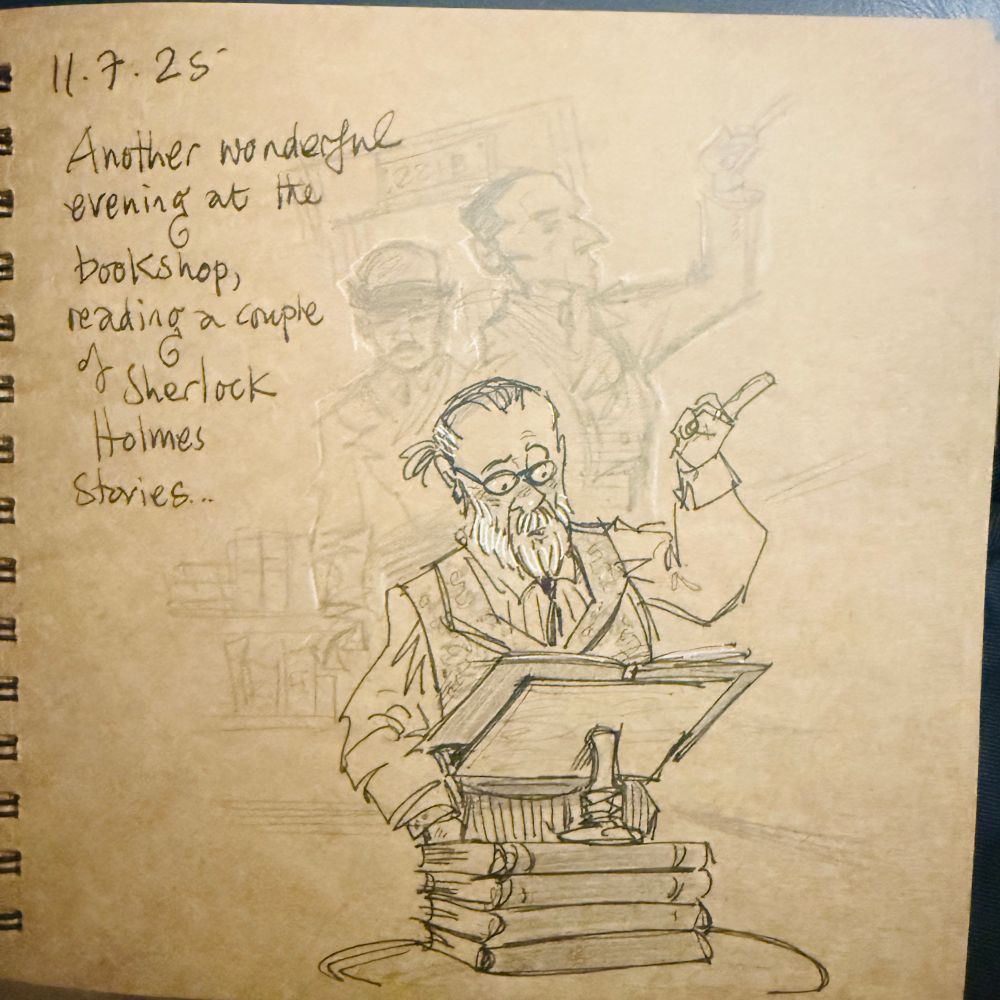 11.7.25
Another wonderful
evening at the
bookshop,
reading a couple
of Sherlock
Holmes
stories...
221B